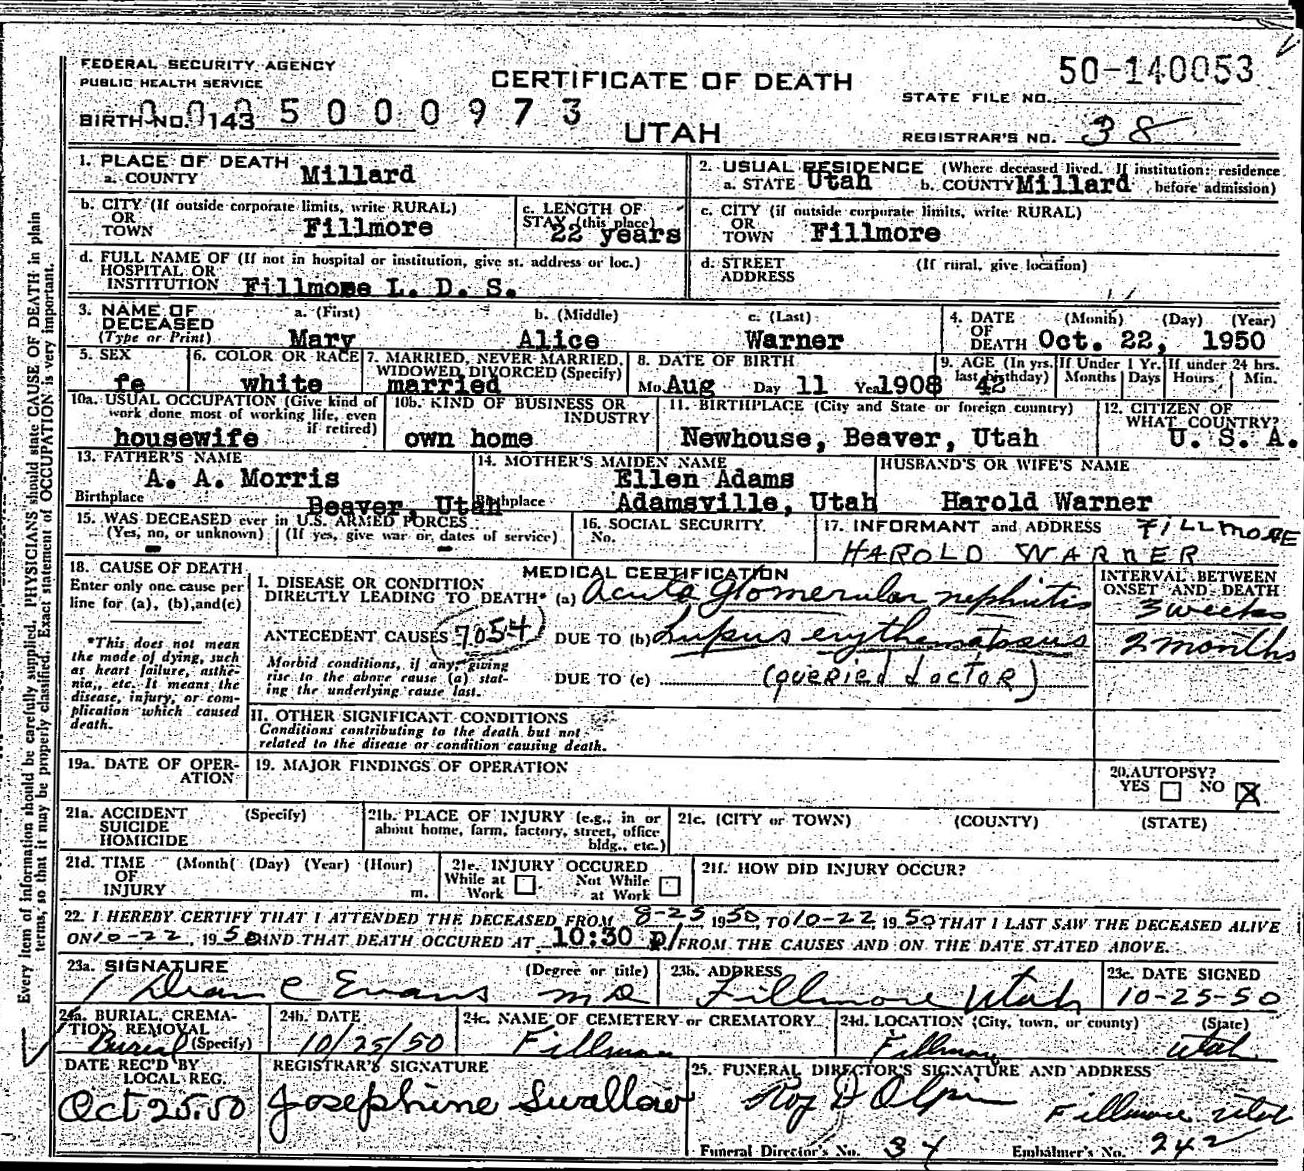 FEDERAL SECURITY AGENCY
PUBLIC HEALTH SERVICE
CERTIFICATE OF DEATH
50-140053
STATE FILE NO.
BIRTH NO. 143 5000973
UTAH
REGISTRAR'S NO. 38
1. PLACE OF DEATH
a. COUNTY Millard
2. USUAL RESIDENCE (Where deceased lived. If institution: residence before admission)
a. STATE Utah b. COUNTY Millard
b. CITY (If outside corporate limits, write RURAL) OR TOWN Fillmore
c. LENGTH OF STAY (this place) 22 years
c. CITY (if outside corporate limits, write RURAL) OR TOWN Fillmore
d. FULL NAME OF (If not in hospital or institution, give st. address or loc.)
HOSPITAL OR INSTITUTION Fillmore L. D. S.
d. STREET ADDRESS (If rural, give location)
3. NAME OF DECEASED (Type or Print)
a. (First) Mary b. (Middle) Alice c. (Last) Warner
4. DATE OF DEATH (Month) (Day) (Year) Oct. 22, 1950
5. SEX fe
6. COLOR OR RACE white
7. MARRIED, NEVER MARRIED, WIDOWED, DIVORCED (Specify) married
8. DATE OF BIRTH Mo. Aug Day 11 Year 1908
9. AGE (In yrs. last birthday) 42
If Under 1 Yr. Months Days
If under 24 hrs. Hours Min.
10a. USUAL OCCUPATION (Give kind of work done most of working life, even if retired) housewife
10b. KIND OF BUSINESS OR INDUSTRY own home
11. BIRTHPLACE (City and State or foreign country) Newhouse, Beaver, Utah
12. CITIZEN OF WHAT COUNTRY? U. S. A.
13. FATHER'S NAME A. A. Morris
Birthplace Beaver, Utah
14. MOTHER'S MAIDEN NAME Ellen Adams
Birthplace Adamsville, Utah
HUSBAND'S OR WIFE'S NAME Harold Warner
15. WAS DECEASED ever in U.S. ARMED FORCES
(Yes, no, or unknown) (If yes, give war or dates of service)
16. SOCIAL SECURITY No.
17. INFORMANT and ADDRESS FILLMORE
HAROLD WARNER
18. CAUSE OF DEATH
Enter only one cause per line for (a), (b), and (c)
*This does not mean the mode of dying, such as heart failure, asthenia, etc. It means the disease, injury, or complication which caused death.
MEDICAL CERTIFICATION
INTERVAL BETWEEN ONSET AND DEATH
I. DISEASE OR CONDITION DIRECTLY LEADING TO DEATH* (a) Acute Glomerular nephritis 3 weeks
ANTECEDENT CAUSES 7054 DUE TO (b) Lupus erythematosus 2 months
Morbid conditions, if any, giving rise to the above cause (a) stating the underlying cause last.
DUE TO (c) (queried doctor)
II. OTHER SIGNIFICANT CONDITIONS
Conditions contributing to the death but not related to the disease or condition causing death.
19a. DATE OF OPERATION
19. MAJOR FINDINGS OF OPERATION
20. AUTOPSY? YES NO X
21a. ACCIDENT SUICIDE HOMICIDE (Specify)
21b. PLACE OF INJURY (e.g., in or about home, farm, factory, street, office bldg., etc.)
21c. (CITY or TOWN) (COUNTY) (STATE)
21d. TIME OF INJURY (Month) (Day) (Year) (Hour) m.
21e. INJURY OCCURED While at Work Not While at Work
21f. HOW DID INJURY OCCUR?
22. I HEREBY CERTIFY THAT I ATTENDED THE DECEASED FROM 8-25, 1950, TO 10-22, 1950 THAT I LAST SAW THE DECEASED ALIVE
ON 10-22, 1950 AND THAT DEATH OCCURED AT 10:30 p/ FROM THE CAUSES AND ON THE DATE STATED ABOVE.
23a. SIGNATURE (Degree or title) Dean C Evans MD
23b. ADDRESS Fillmore Utah
23c. DATE SIGNED 10-25-50
24a. BURIAL, CREMATION, REMOVAL (Specify) Burial
24b. DATE 10/25/50
24c. NAME OF CEMETERY or CREMATORY Fillmore
24d. LOCATION (City, town, or county) (State) Fillmore Utah
DATE REC'D BY LOCAL REG. Oct 25.50
REGISTRAR'S SIGNATURE Josephine Swallow
25. FUNERAL DIRECTOR'S SIGNATURE AND ADDRESS
Roy D Olpin Fillmore Utah
Funeral Director's No. 34 Embalmer's No. 242
Every item of information should be carefully supplied. PHYSICIANS should state CAUSE OF DEATH in plain
terms, so that it may be properly classified. Exact statement of OCCUPATION is very important.